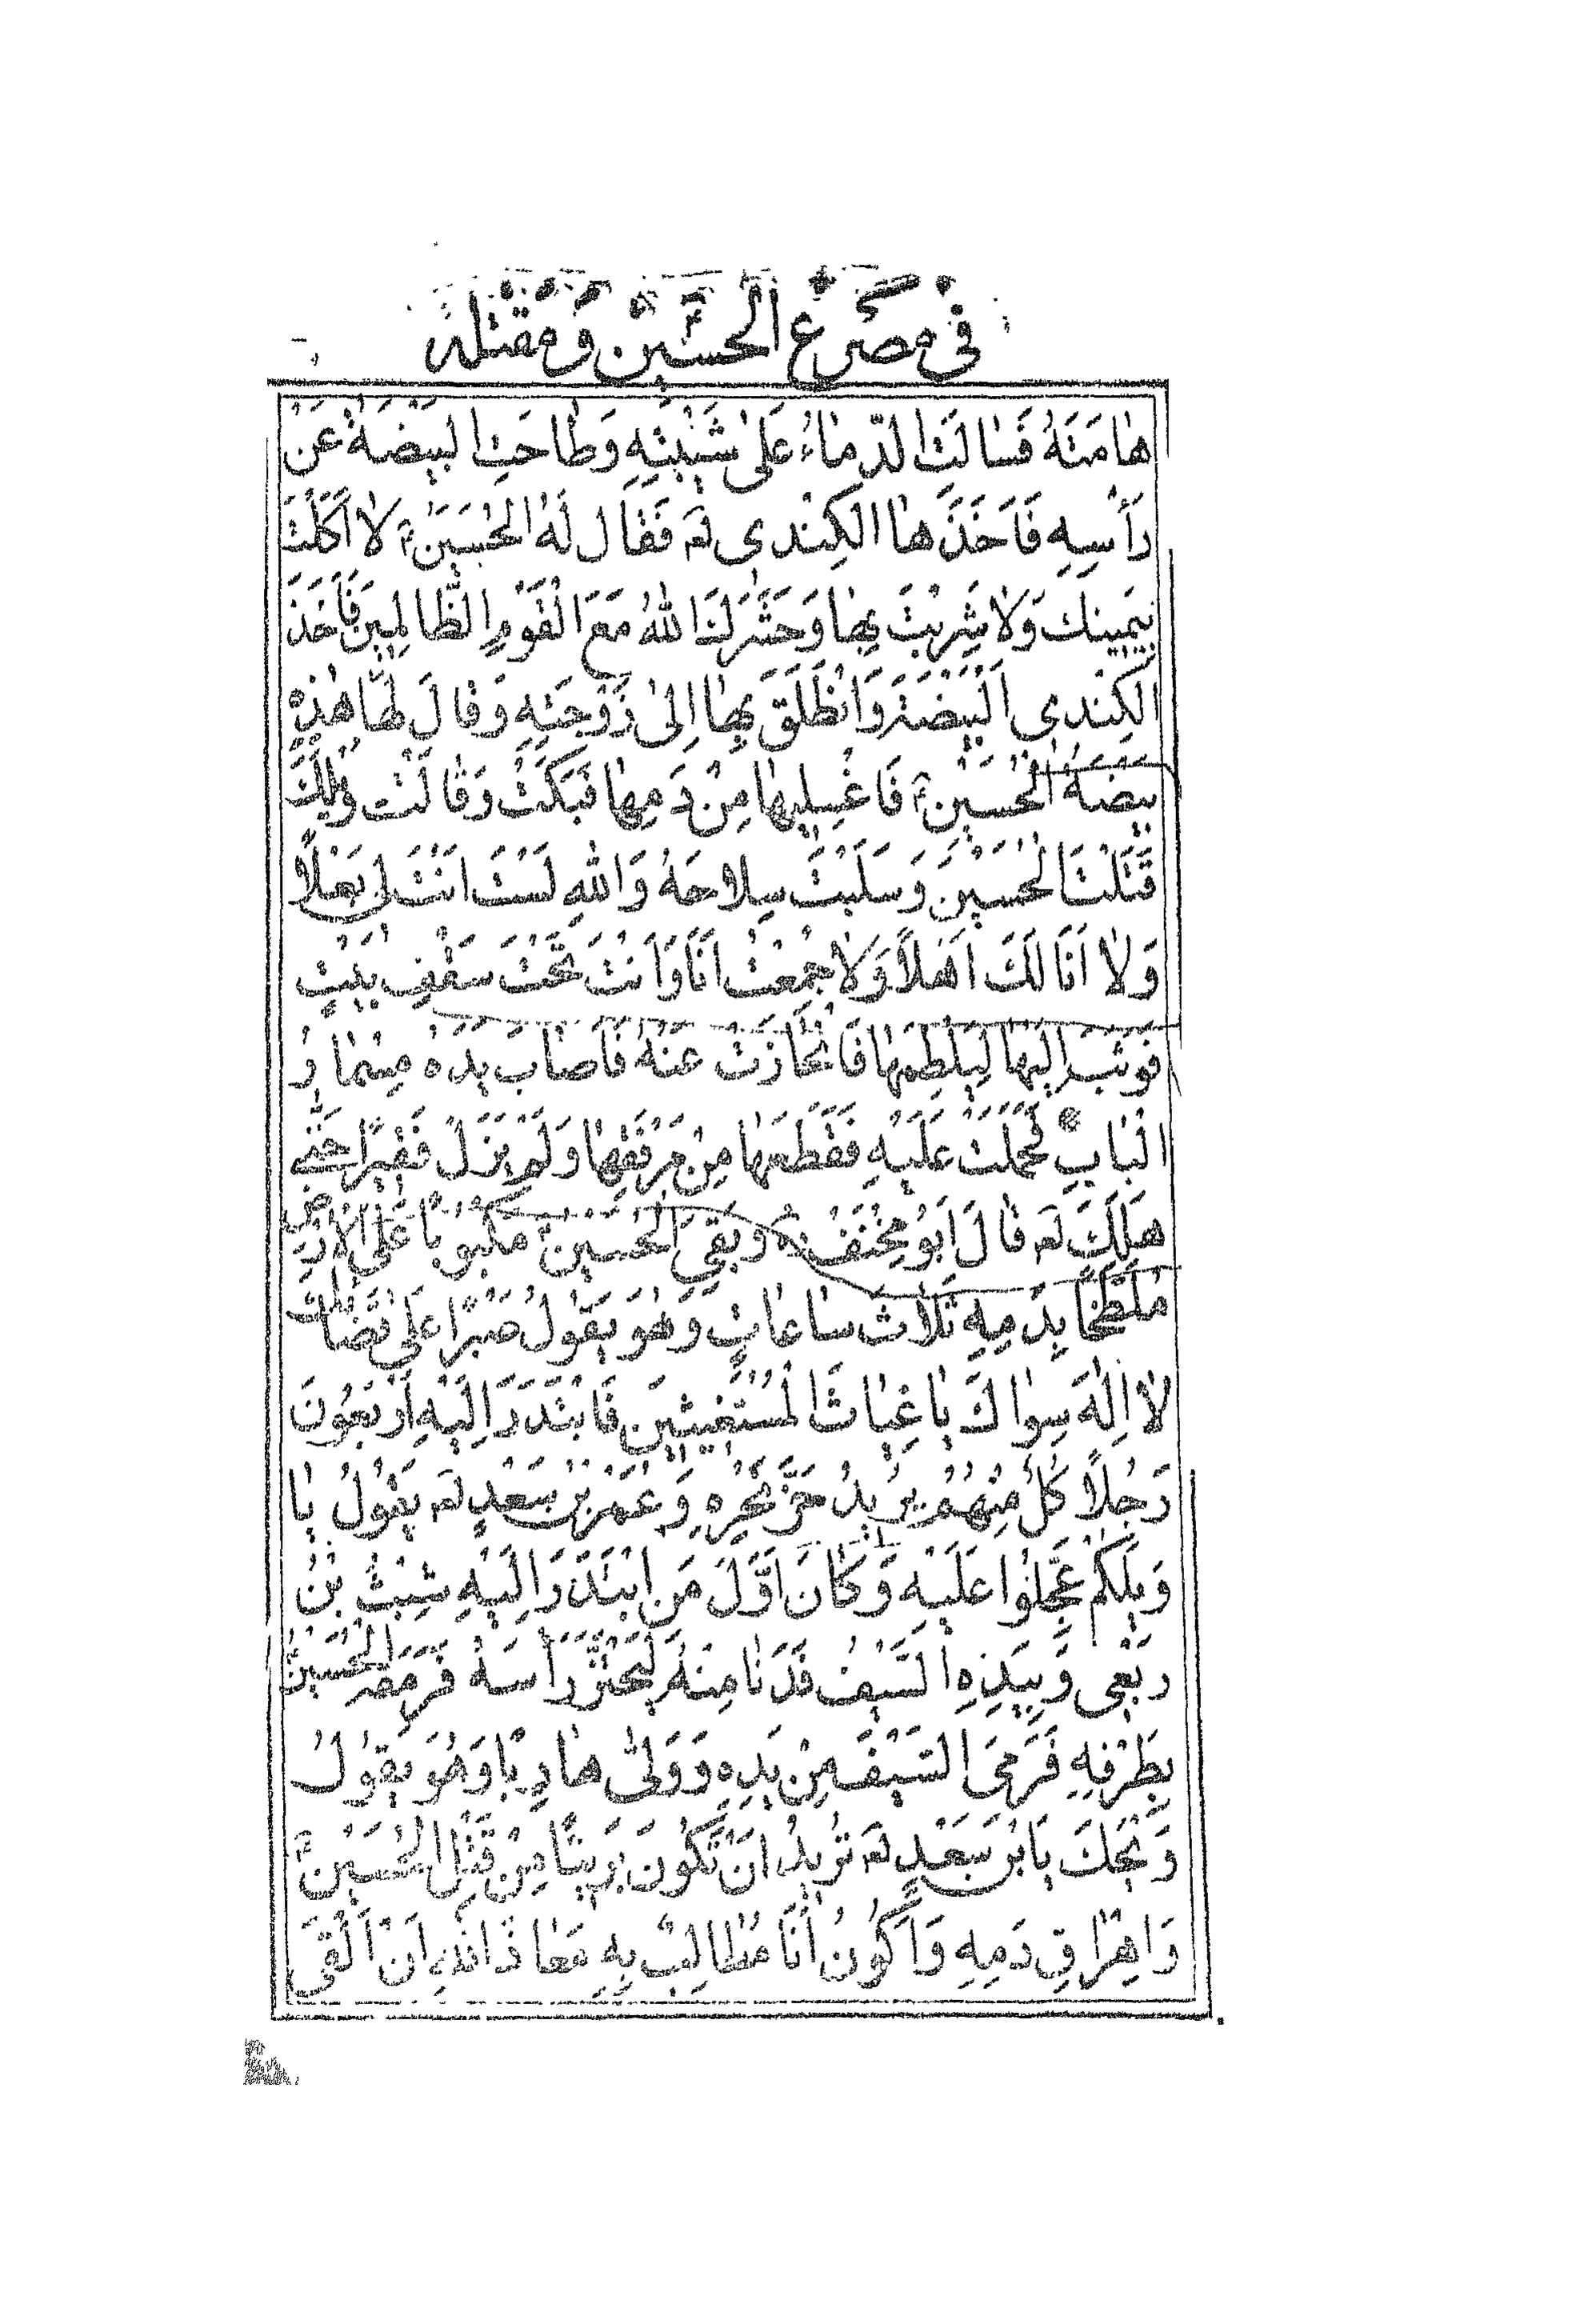 في مصرع الحسين ومقتله
هَامَتَهُ فَسَالَتِ الدِّمَاءُ عَلىٰ شَيْبَتِهِ وَطَاحَتِ الْبَيْضَةُ عَنْ
رَأْسِهِ فَاَخَذَهَا الكِنْدى لع فَقَالَ لَهُ الحُسَيْنُ ع لَا اَكَلْتَ
بِيَمِينِكَ وَلَا شَرِبْتَ بِهَا وَحَشَرَكَ اللهُ مَعَ الْقَوْمِ الظَّالِمِينَ فَاَخَذَ
الكِنْدى اَلْبَيْضَةَ وَانْطَلَقَ بِهَا اِلىٰ زَوْجَتِهِ وَقَالَ لَهَا هٰذِهِ
بَيْضَةُ الْحُسَيْنِ ع فَاغْسِلِيهَا مِنْ دَمِهَا فَبَكَتْ وَقَالَتْ وَيْلَكَ
قَتَلْتَ الْحُسَيْنَ وَسَلَبْتَ سِلَاحَهُ وَاللهِ لَسْتَ اَنْتَ لِي بَعْلًا
وَلَا اَنَا لَكَ اَهْلًا وَلَا جُمِعْتُ اَنَا وَاَنْتَ تَحْتَ سَقْفِ بَيْتٍ
فَوَثَبَ اِلَيْهَا لِيَلْطِمَهَا فَانْحَازَتْ عَنْهُ فَاَصَابَ يَدَهُ مِسْمَارُ
الْبَابِ فَحَمَلَتْ عَلَيْهِ فَقَطَعَهَا مِنْ مِرْفَقِهَا وَلَمْ يَزَلْ فَقِيرًا حَتّٰى
هَلَكَ لع قَالَ اَبُو مِخْنَفْ ره وَبَقِيَ الْحُسَيْنُ ع مَكْبُوبًا عَلَى الْاَرْضِ
مُلَطَّخًا بِدَمِهِ ثَلَاثَ سَاعَاتٍ وَهُوَ يَقُولُ صَبْرًا عَلىٰ قَضَائِكَ
لَا اِلٰهَ سِوَاكَ يَا غِيَاثَ الْمُسْتَغِيثِينَ فَابْتَدَرَ اِلَيْهِ اَرْبَعُونَ
رَجُلًا كُلٌّ مِنْهُمْ يُرِيدُ حَزَّ نَحْرِهِ وَعُمَرُ بْنُ سَعْدٍ لع يَقُولُ يَا
وَيْلَكُمْ عَجِّلُوا عَلَيْهِ وَكَانَ اَوَّلَ مَنِ ابْتَدَرَ اِلَيْهِ شِبْثُ بْنُ
رِبْعِى وَبِيَدِهِ السَّيْفُ فَدَنَا مِنْهُ لِيَحْتَزَّ رَأْسَهُ فَرَمَقَهُ الْحُسَيْنُ
بِطَرْفِهِ فَرَمَى السَّيْفَ مِنْ يَدِهِ وَوَلّٰى هَارِبًا وَهُوَ يَقُولُ
وَيْحَكَ يَابْنَ سَعْدٍ لع تُرِيدُ اَنْ تَكُونَ بَرِيئًا مِنْ قَتْلِ الْحُسَيْنِ ع
وَاِهْرَاقِ دَمِهِ وَاَكُونُ اَنَا مُطَالَبٌ بِهِ مَعَاذَ اللهِ اَنْ اَلْقَى